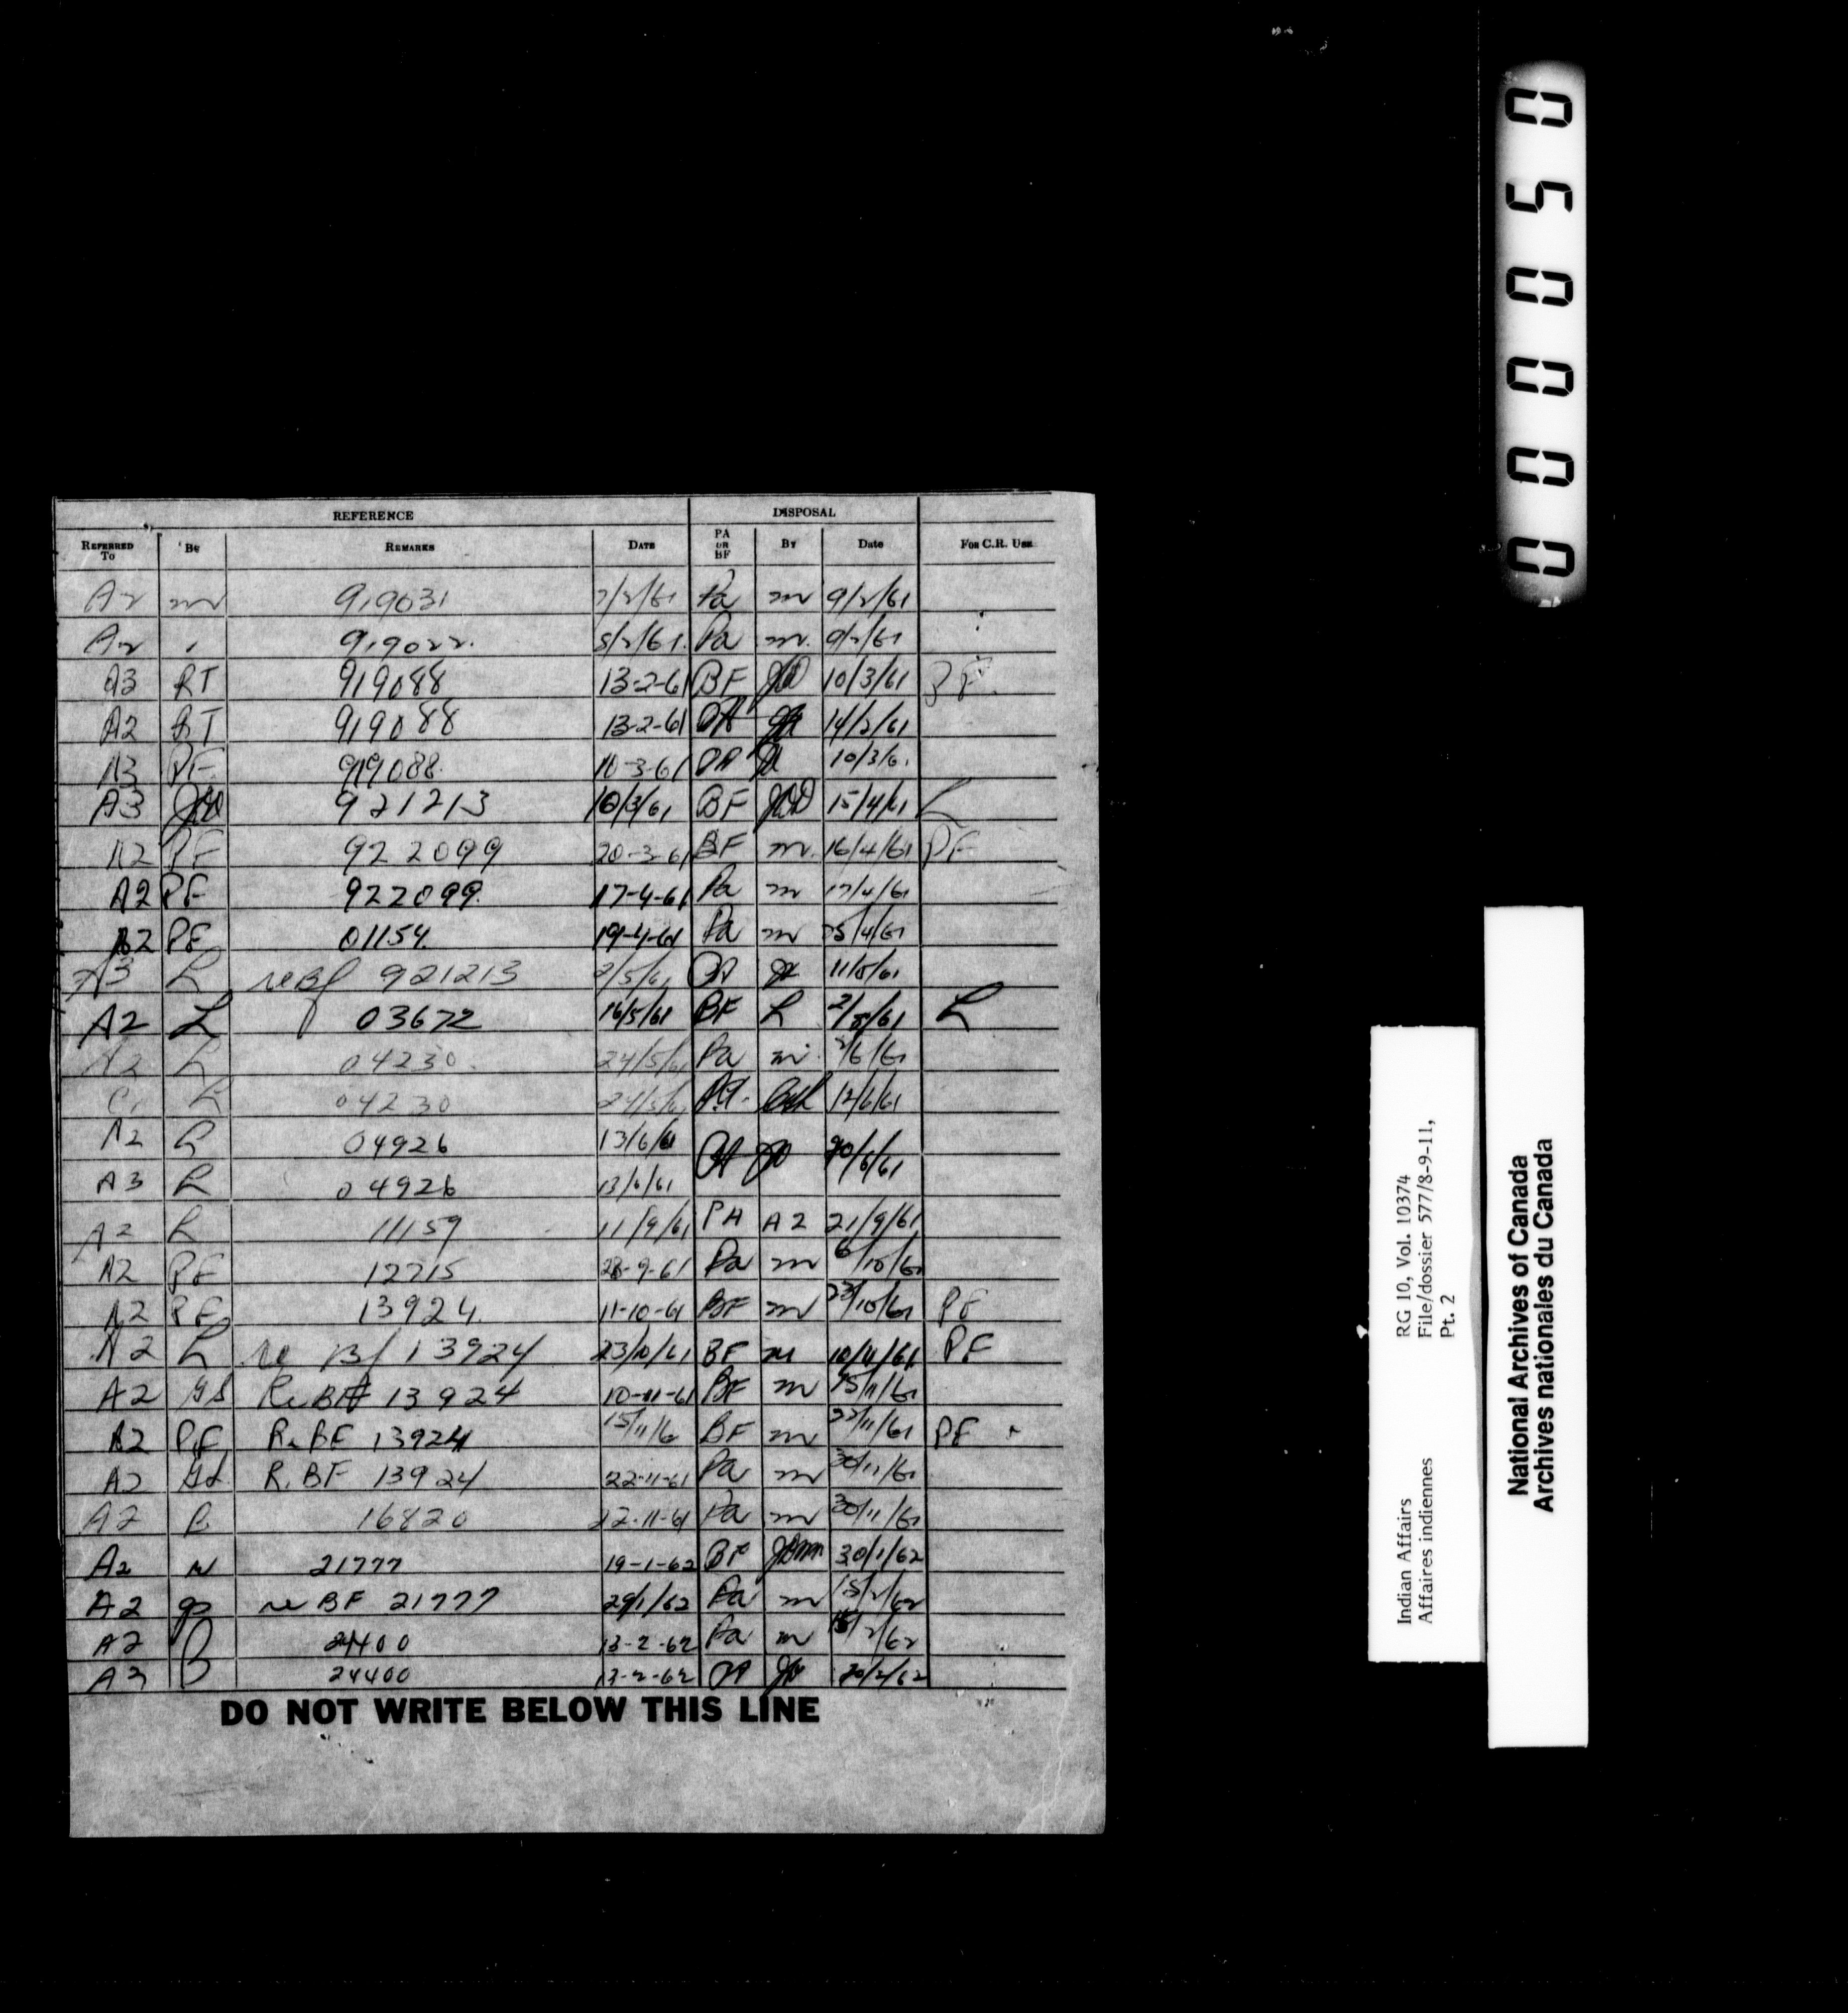 REFERENCE DISPOSAL
REFERRED TO BY REMARKS DATE PA OR BF BY DATE FOR C.R. USE
A2 m 919031 7/2/61 Pa m 9/2/61
A2 919022. 8/2/61. Pa m. 9/2/61
A3 RT 919088 13-2-61 BF 10/3/61
A2 RT 919088 13-2-61 PA 14/2/61
A3 PF 919088. 10-3-61 PA 10/3/61
A3 921213 10/3/61 BF 15/4/61 L
A2 PF 922099 20-3-61 BF m. 16/4/61 PF
A2 PF 922099. 17-4-61 Pa m 17/4/61
A2 PF 01154. 19-4-61 Pa m 25/4/61
A3 L re Bf 921213 2/5/61 PA 11/5/61
A2 L 03672 16/5/61 BF L 2/8/61 L
A2 L 04230. 24/5/61 Pa m. 2/6/61
L 04230 24/5/61 P.A. 12/6/61
A2 L 04926 13/6/61 PA 20/6/61
A3 L 04926 13/6/61
A2 L 11159 11/9/61 PA A2 21/9/61
A2 PF 12715 28-9-61 Pa m 6/10/61
A2 PF 13924. 11-10-61 BF m 23/10/61 PF
A2 L re Bf 13924 23/10/61 BF m 10/11/61 PF
A2 Re BF 13924 10-11-61 BF m 15/11/61
A2 PF Re BF 13924 15/11/6 BF m 22/11/61 PF
A2 R. BF 13924 22-11-61 Pa m 30/11/61
A2 B 16820 22-11-61 Pa m 30/11/61
A2 21777 19-1-62 BF 30/1/62
A2 re BF 21777 29/1/62 Pa m 15/2/62
A2 B 24400 13-2-62 Pa m 15/2/62
A3 24400 13-2-62 PA 20/2/62
DO NOT WRITE BELOW THIS LINE
000050
Indian Affairs RG 10, Vol. 10374
Affaires indiennes File/dossier 577/8-9-11,
Pt. 2
National Archives of Canada
Archives nationales du Canada